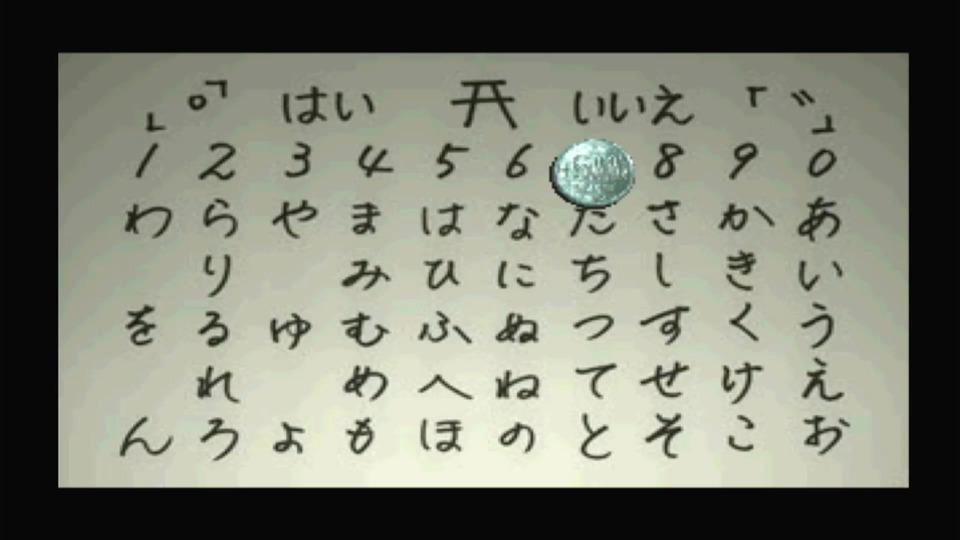 はい ⛩ いいえ 「゛」
1 2 3 4 5 6 500 8 9 0
わ ら や ま は な た さ か あ
り み ひ に ち し き い
を る ゆ む ふ ぬ つ す く う
れ め へ ね て せ け え
ん ろ よ も ほ の と そ こ お